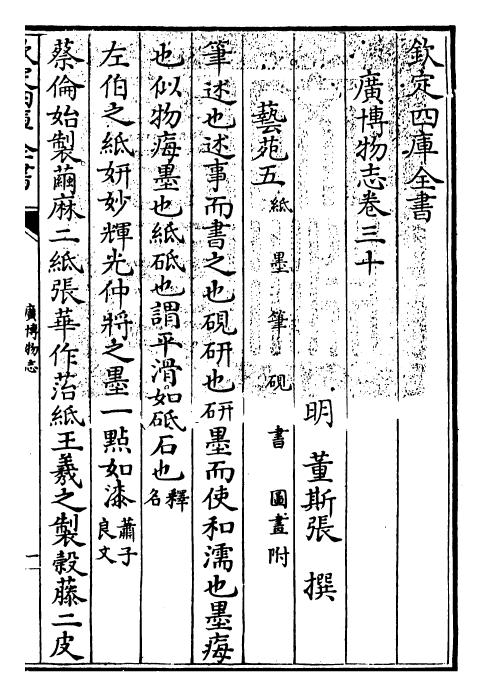 欽定四庫全書
廣博物志卷三十
明 董斯張 撰
藝苑五 紙 墨 筆 硯 書 圖畫附
筆述也述事而書之也硯研也研墨而使和濡也墨痗
也似物痗墨也紙砥也謂平滑如砥石也 釋名
左伯之紙妍妙輝光仲將之墨一點如漆 蕭子良文
蔡倫始製蔴麻二紙張華作苔紙王羲之製穀藤二皮
廣博物志
一